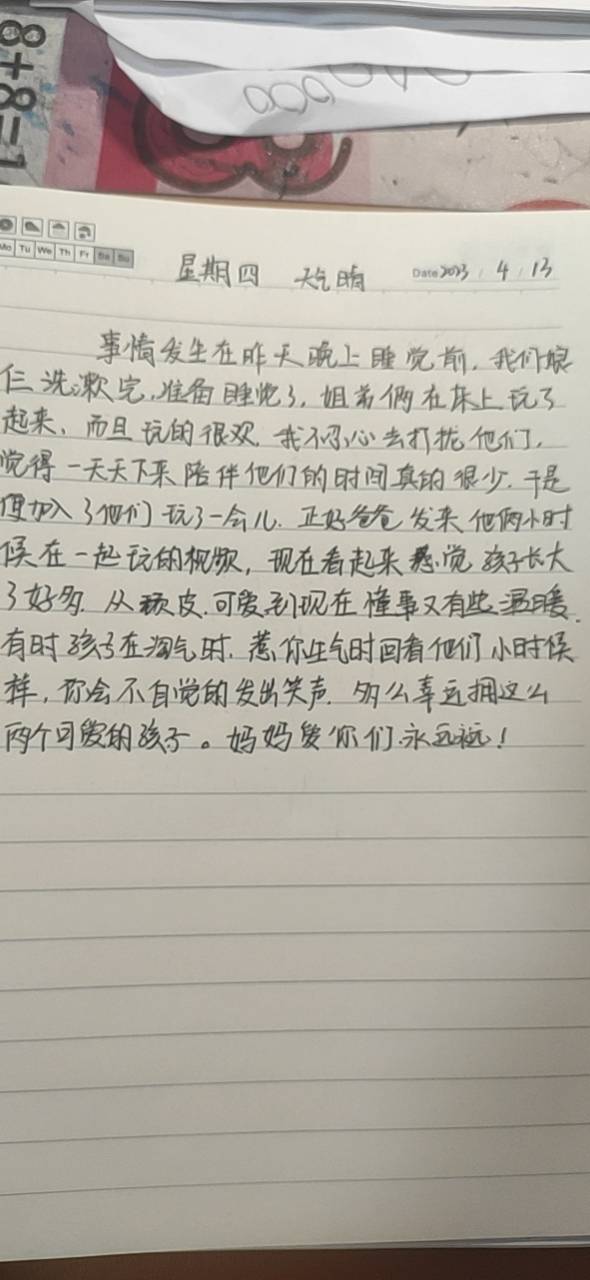 8+8=1
Mo Tu We Th Fr Sa Su
星期四 天气晴 Date 2023 / 4 / 13
事情发生在昨天晚上睡觉前,我们娘
仨洗漱完,准备睡觉了,姐弟俩在床上玩了
起来、而且玩的很欢,我不忍心去打扰他们,
觉得一天天下来陪伴他们的时间真的很少,于是
便加入了他们玩了一会儿.正好爸爸发来他俩小时
候在一起玩的视频,现在看起来感觉孩子长大
了好多.从顽皮.可爱到现在懂事又有些温暖.
有时孩子在淘气时.惹你生气时回看他们小时候
样,你会不自觉的发出笑声.多么幸运拥这么
两个可爱的孩子。妈妈爱你们.永远远!